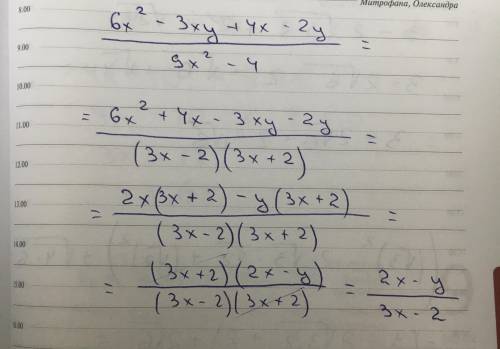 Митрофана, Олександра
8.00
(6x² - 3xy + 4x - 2y)/(9x² - 4) =
9.00
10.00
= (6x² + 4x - 3xy - 2y)/((3x - 2)(3x + 2)) =
11.00
12.00
= (2x(3x + 2) - y(3x + 2))/((3x - 2)(3x + 2)) =
13.00
14.00
= ((3x + 2)(2x - y))/((3x - 2)(3x + 2)) = (2x - y)/(3x - 2)
15.00